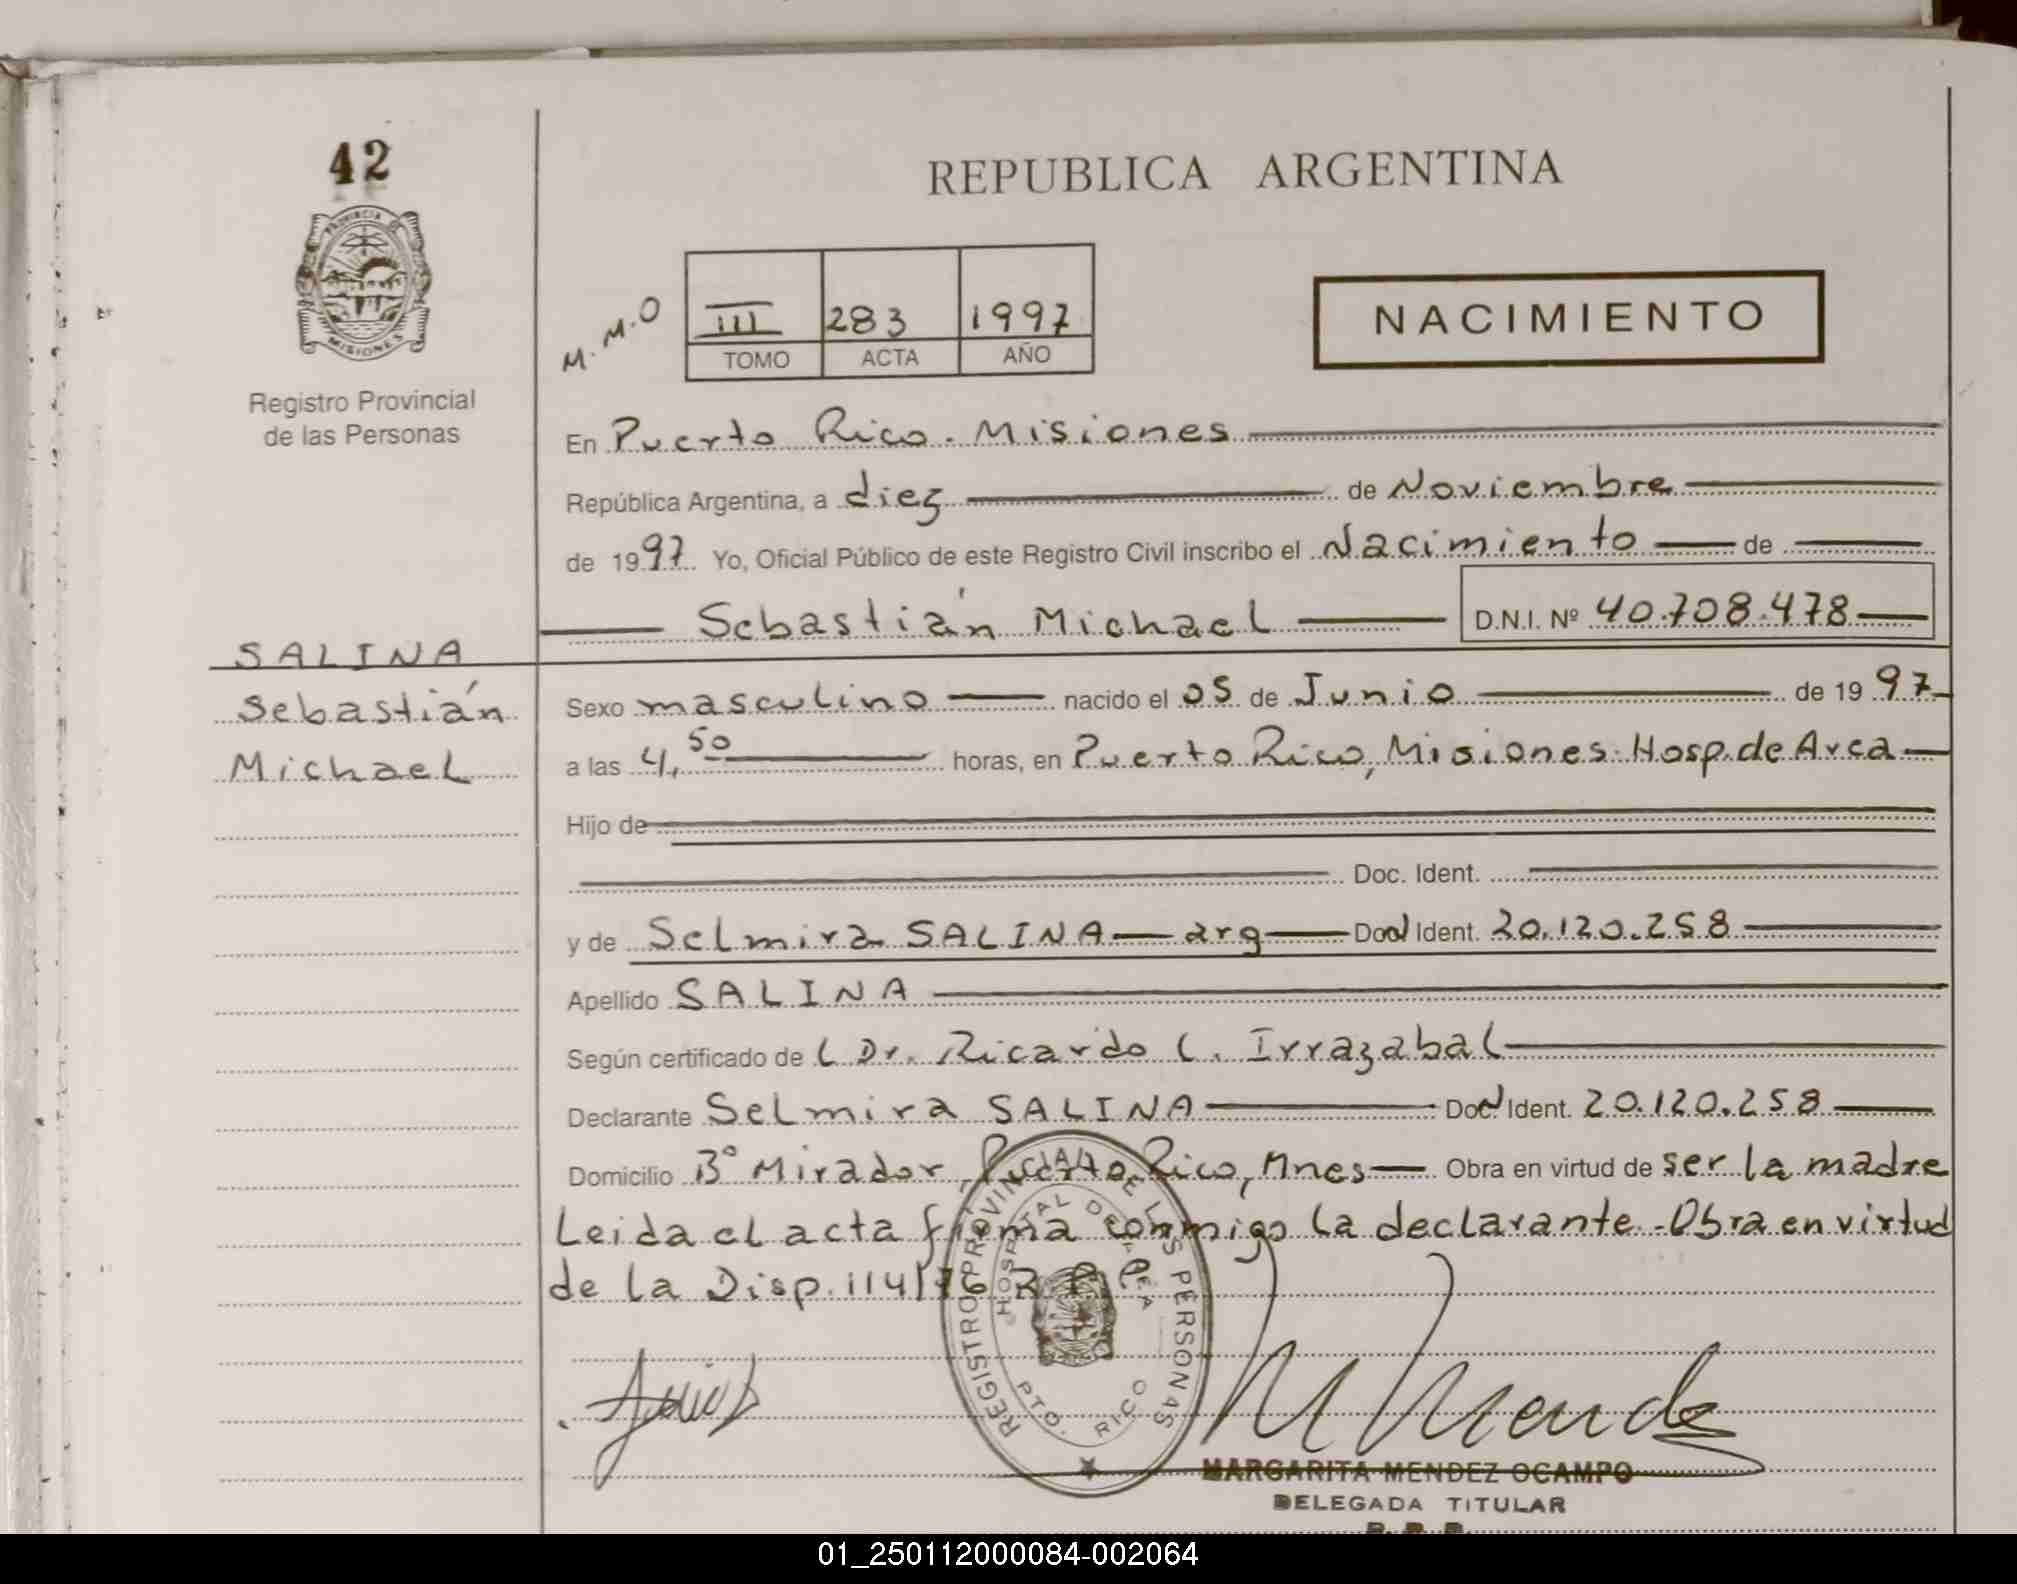 42
PROVINCIA DE
MISIONES
Registro Provincial
de las Personas
REPUBLICA ARGENTINA
M. M. O
III 283 1997
TOMO ACTA AÑO
NACIMIENTO
En Puerto Rico. Misiones
República Argentina, a diez de Noviembre
de 1997 Yo, Oficial Público de este Registro Civil inscribo el Nacimiento de
Sebastián Michael D.N.I. Nº 40.708.478
SALINA
Sebastián
Michael
Sexo masculino nacido el 05 de Junio de 1997
a las 4,50 horas, en Puerto Rico, Misiones. Hosp. de Area
Hijo de
Doc. Ident.
y de Selmira SALINA arg Doc. Ident. 20.120.258
Apellido SALINA
Según certificado de l Dr. Ricardo C. Irrazabal
Declarante Selmira SALINA Doc. Ident. 20.120.258
Domicilio Bº Mirador, Puerto Rico, Mnes Obra en virtud de ser la madre
Leida el acta firma conmigo la declarante. Obra en virtud
de la Disp. 114/76 R. P. P.
REGISTRO PROVINCIAL DE LAS PERSONAS
HOSPITAL DE AREA
PTO. RICO
M Mendez
MARGARITA MENDEZ OCAMPO
DELEGADA TITULAR
01_250112000084-002064